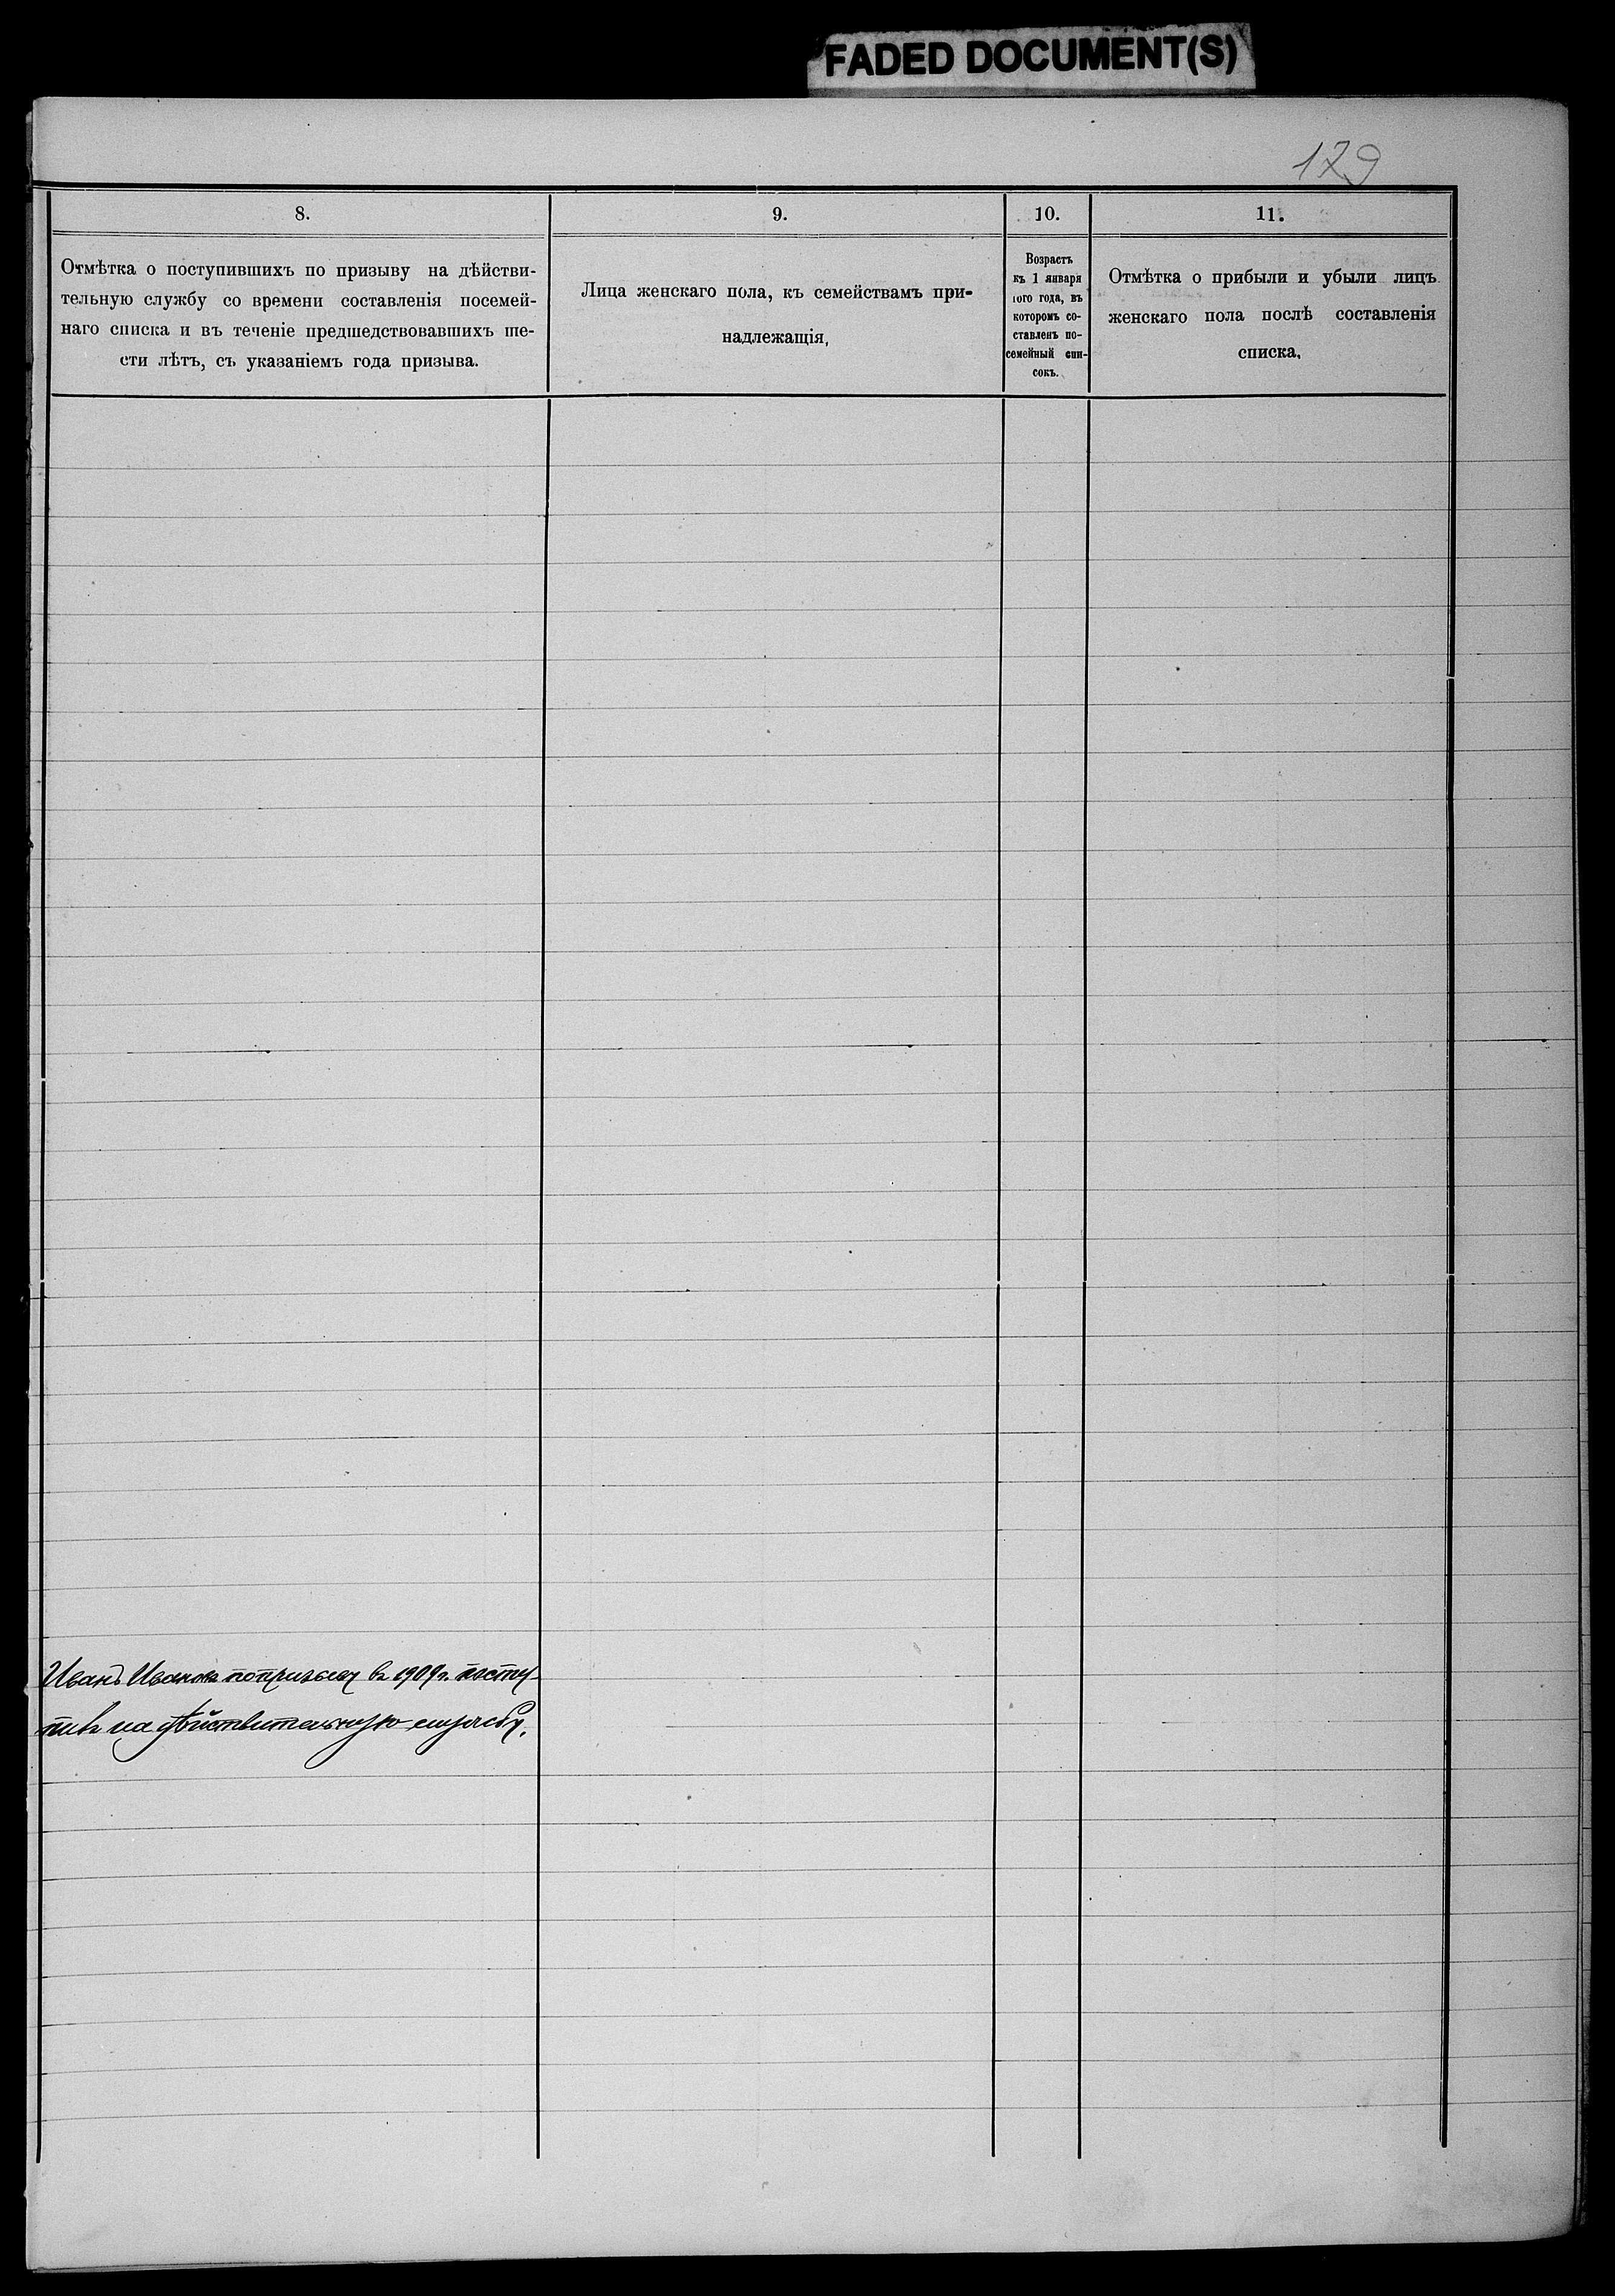 FADED DOCUMENT(S)
129
8.
9.
10.
11.
Отмѣтка о поступившихъ по призыву на дѣйстви-
тельную службу со времени составленія посемей-
наго списка и въ теченіе предшедствовавшихъ ше-
сти лѣтъ, съ указаніемъ года призыва.
Лица женскаго пола, къ семействамъ при-
надлежащія,
Возрастъ
къ 1 января
того года, въ
которомъ со-
ставленъ по-
семейный спи-
сокъ.
Отмѣтка о прибыли и убыли лицъ
женскаго пола послѣ составленія
списка.
Иванъ Ивановъ по призыву въ 1909 г. посту-
пивъ на дѣйствительную службу.